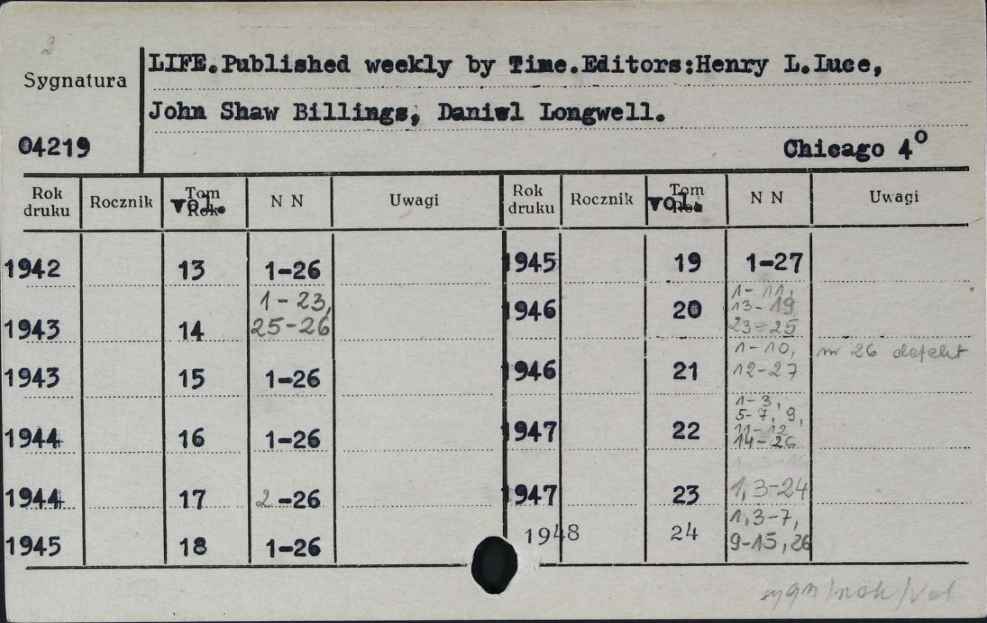 2
Sygnatura
04219
LIFE.Published weekly by Time.Editors:Henry L.Luce,
John Shaw Billings, Daniel Longwell.
Chicago 4°
Rok druku Rocznik Tom Rok vol. N N Uwagi Rok druku Rocznik Tom Rok vol. N N Uwagi
1942 13 1-26 1945 19 1-27
1943 14 1-23, 25-26 1946 20 1-11, 13-19, 23-25
1943 15 1-26 1946 21 1-10, 12-27 nr 26 defekt
1944 16 1-26 1947 22 1-3, 5-7, 9, 11-12 14-26
1944 17 2-26 1947 23 1,3-24
1945 18 1-26 1948 24 1,3-7, 9-15,26
sygn/rok/vol